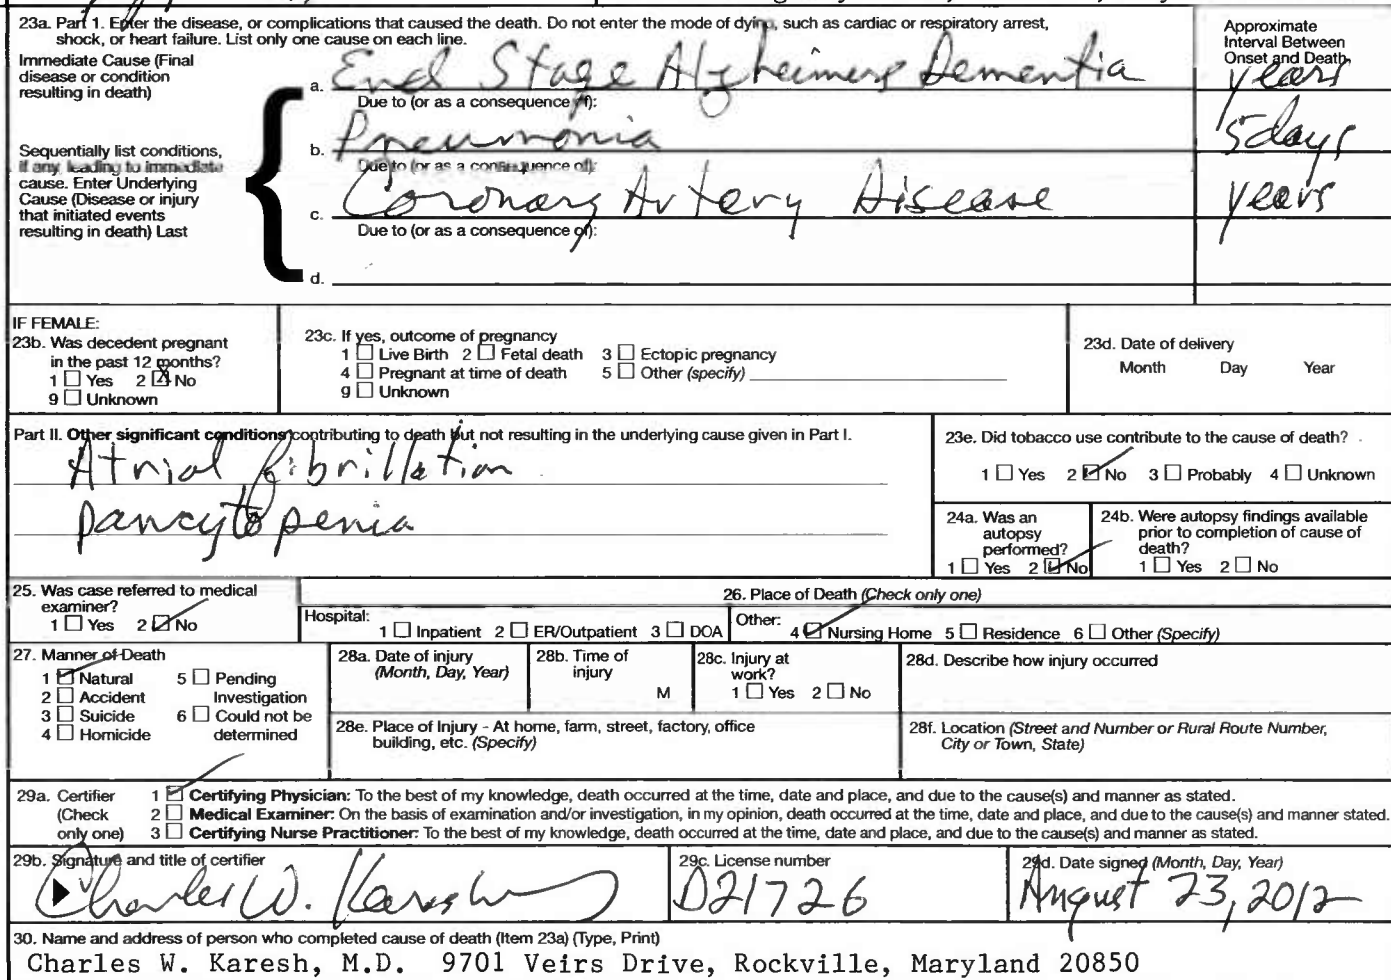 23a. Part 1. Enter the disease, or complications that caused the death. Do not enter the mode of dying, such as cardiac or respiratory arrest,
shock, or heart failure. List only one cause on each line.
Approximate
Interval Between
Onset and Death
Immediate Cause (Final
disease or condition
resulting in death)
a. End Stage Alzheimers Dementia
years
Due to (or as a consequence of):
b. Pneumonia
5 days
Sequentially list conditions,
if any, leading to immediate
cause. Enter Underlying
Cause (Disease or injury
that initiated events
resulting in death) Last
Due to (or as a consequence of):
c. Coronary Artery Disease
years
Due to (or as a consequence of):
d.
IF FEMALE:
23b. Was decedent pregnant
in the past 12 months?
1 ☐ Yes 2 ☒ No
9 ☐ Unknown
23c. If yes, outcome of pregnancy
1 ☐ Live Birth 2 ☐ Fetal death 3 ☐ Ectopic pregnancy
4 ☐ Pregnant at time of death 5 ☐ Other (specify)
9 ☐ Unknown
23d. Date of delivery
Month Day Year
Part II. Other significant conditions contributing to death but not resulting in the underlying cause given in Part I.
Atrial fibrillation
pancytopenia
23e. Did tobacco use contribute to the cause of death?
1 ☐ Yes 2 ☑ No 3 ☐ Probably 4 ☐ Unknown
24a. Was an
autopsy
performed?
1 ☐ Yes 2 ☑ No
24b. Were autopsy findings available
prior to completion of cause of
death?
1 ☐ Yes 2 ☐ No
25. Was case referred to medical
examiner?
1 ☐ Yes 2 ☑ No
26. Place of Death (Check only one)
Hospital: 1 ☐ Inpatient 2 ☐ ER/Outpatient 3 ☐ DOA
Other: 4 ☑ Nursing Home 5 ☐ Residence 6 ☐ Other (Specify)
27. Manner of Death
1 ☑ Natural 5 ☐ Pending
2 ☐ Accident Investigation
3 ☐ Suicide 6 ☐ Could not be
4 ☐ Homicide determined
28a. Date of injury
(Month, Day, Year)
28b. Time of
injury
M
28c. Injury at
work?
1 ☐ Yes 2 ☐ No
28d. Describe how injury occurred
28e. Place of Injury - At home, farm, street, factory, office
building, etc. (Specify)
28f. Location (Street and Number or Rural Route Number,
City or Town, State)
29a. Certifier
(Check
only one)
1 ☑ Certifying Physician: To the best of my knowledge, death occurred at the time, date and place, and due to the cause(s) and manner as stated.
2 ☐ Medical Examiner: On the basis of examination and/or investigation, in my opinion, death occurred at the time, date and place, and due to the cause(s) and manner stated.
3 ☐ Certifying Nurse Practitioner: To the best of my knowledge, death occurred at the time, date and place, and due to the cause(s) and manner as stated.
29b. Signature and title of certifier
Charles W. Karesh
29c. License number
D21726
29d. Date signed (Month, Day, Year)
August 23, 2012
30. Name and address of person who completed cause of death (Item 23a) (Type, Print)
Charles W. Karesh, M.D. 9701 Veirs Drive, Rockville, Maryland 20850